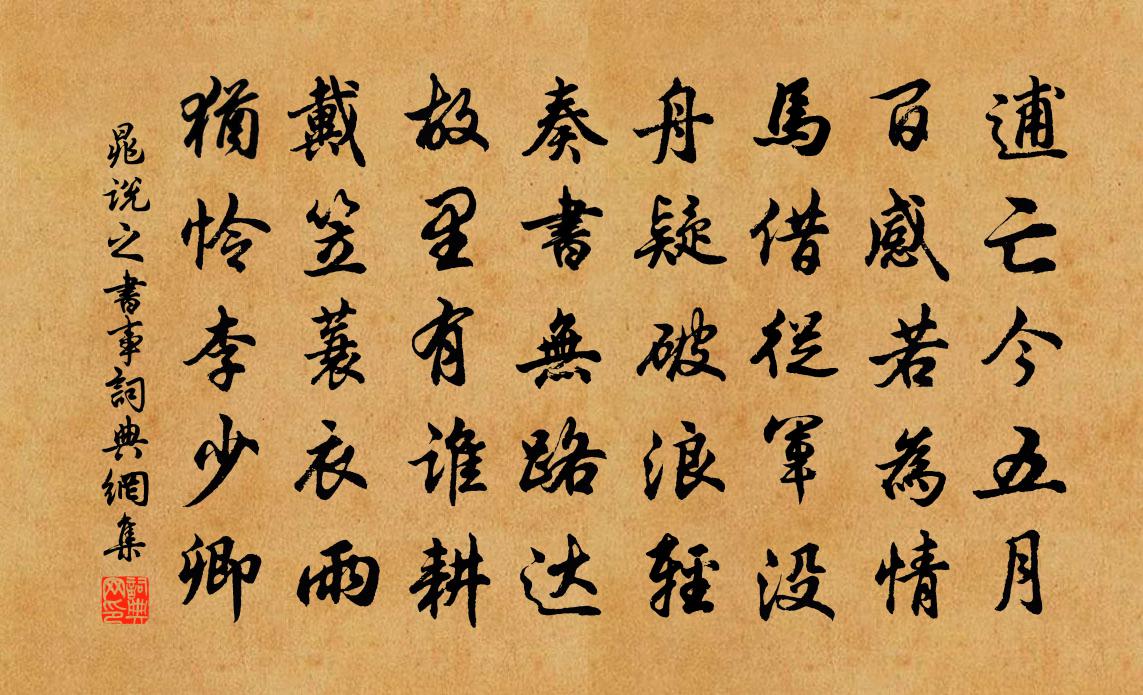 逋亡今五月
百感若為情
馬借從軍没
舟疑破浪輕
奏書無路达
故里有誰耕
戴笠蓑衣雨
猶怜李少卿
晁说之書事詞典網集
詞典网印